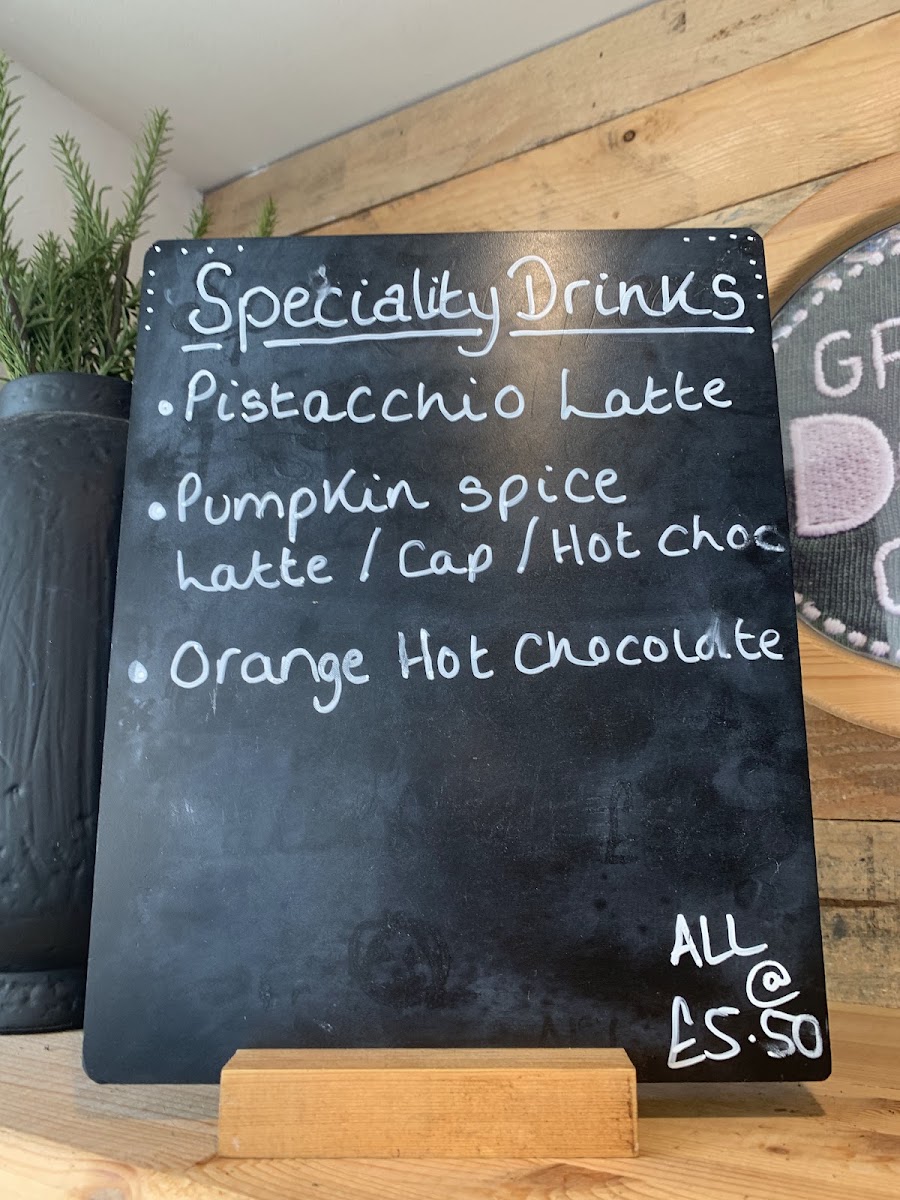 Speciality Drinks
• Pistacchio Latte
• Pumpkin spice
Latte / Cap / Hot choc
• Orange Hot Chocolate
ALL
@
£5.50